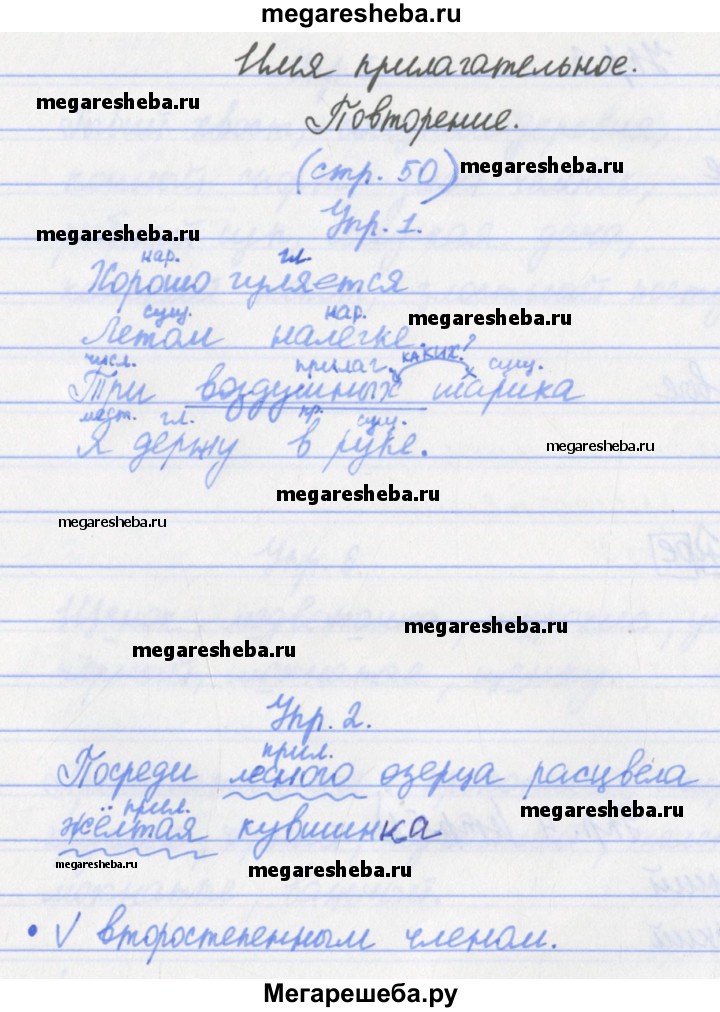 megaresheba.ru
Имя прилагательное.
megaresheba.ru
Повторение.
(стр. 50)
megaresheba.ru
megaresheba.ru
Упр. 1.
нар. гл
Хорошо гуляется
сущ. нар.
Летом налегке.
megaresheba.ru
числ. прилаг. каких? сущ.
Три воздушных шарика
мест. гл. пр. сущ.
я держу в руке.
megaresheba.ru
megaresheba.ru
megaresheba.ru
megaresheba.ru
megaresheba.ru
Упр. 2.
прил.
Посреди лесного озерца расцвела
прил.
жёлтая кувшинка
megaresheba.ru
megaresheba.ru
megaresheba.ru
• √ второстепенным членом.
Мегарешеба.ру